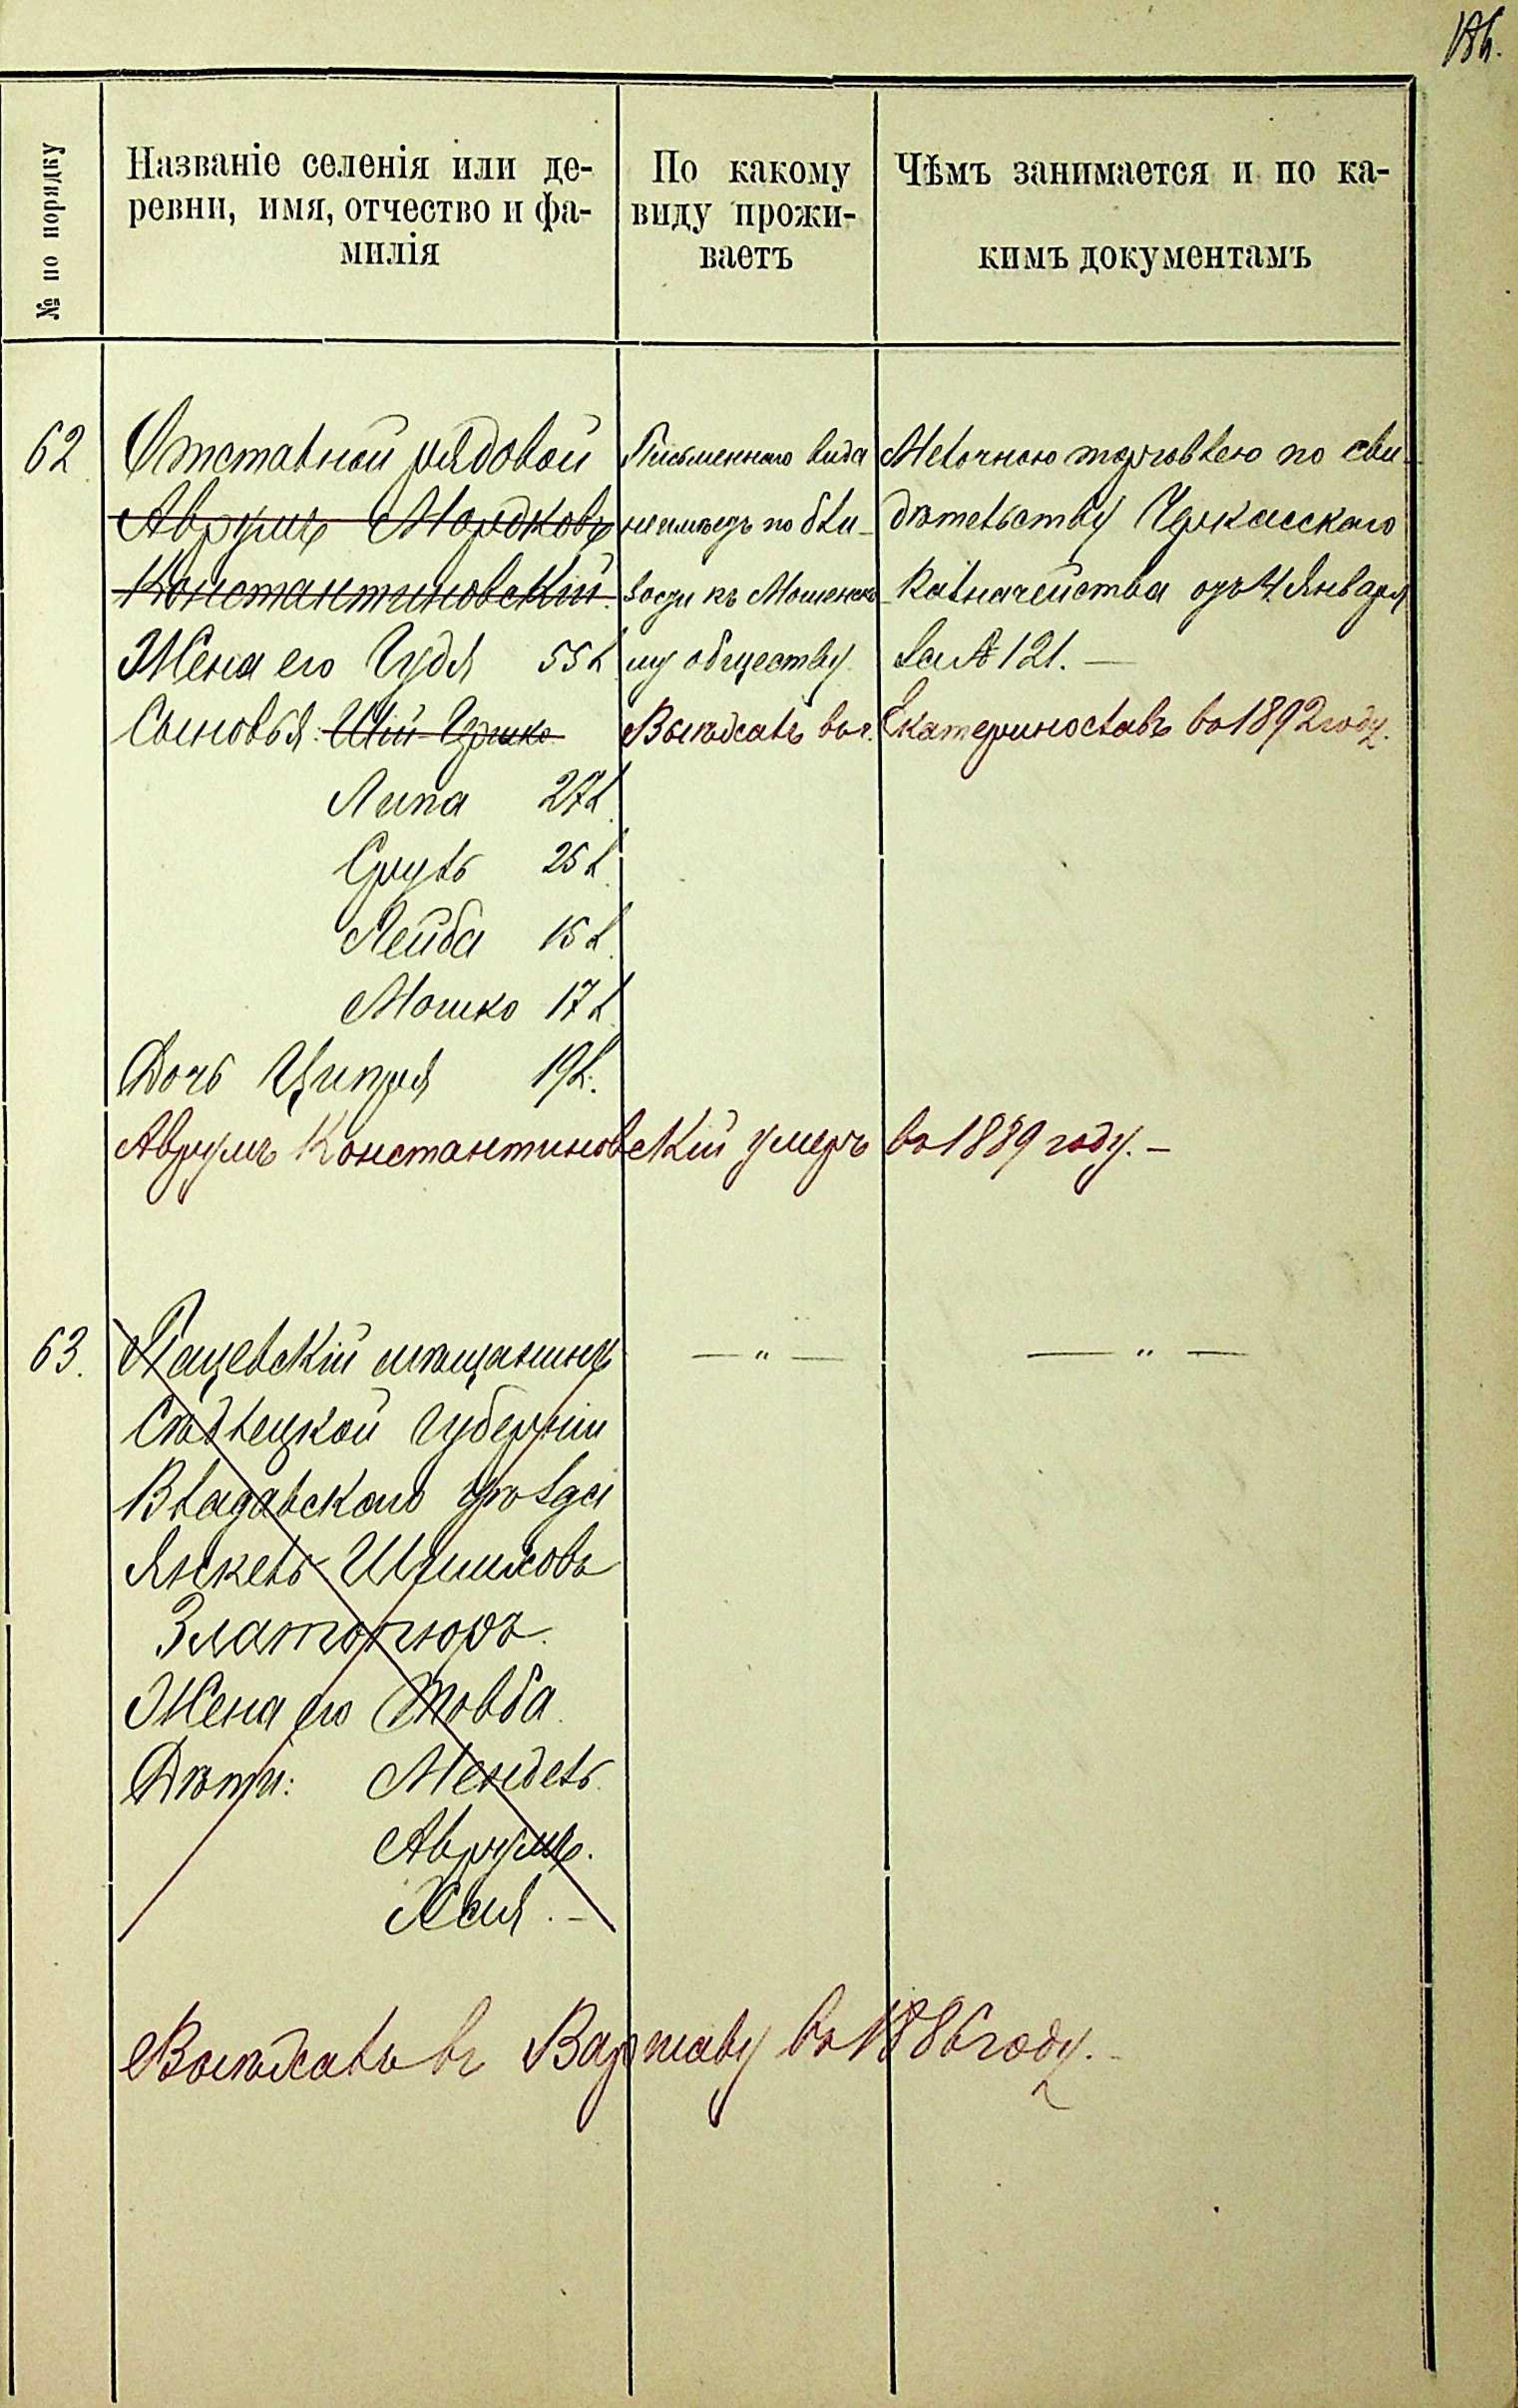 186.
№ по порядку
Названіе селенія или де-
ревни, имя, отчество и фа-
милія
По какому
виду прожи-
ваетъ
Чѣмъ занимается и по ка-
кимъ документамъ
62
Отставной рядовой
Аврумъ Мордковъ
Константиновскій.
Жена его Гудя 55 л
Сыновья: Шій-Гершко
Липа 27 л.
Сруль 25 л.
Лейба 15 л.
Мошко 17 л.
Дочь Ципря 19 л.
Письменнаго вида
не имѣетъ по бли-
зости къ Мошенско-
му обществу.
Мелочною торговлею по сви-
дѣтельству Черкасскаго
Казначейства отъ 4 Января
за № 121. —
Выѣхалъ въ г. Екатеринославъ въ 1892 году.
Аврумъ Константиновскій умеръ въ 1889 году. —
63.
мѣщанинъ
Сѣдлецкой Губерніи
Владавскаго уѣзда
Янкель Шлимовъ
Жена его Товба.
Дѣти: Мендель.
Аврумъ.
Хася. —
— „ —
— „ —
Выѣхалъ въ Варшаву въ 1886 году. —